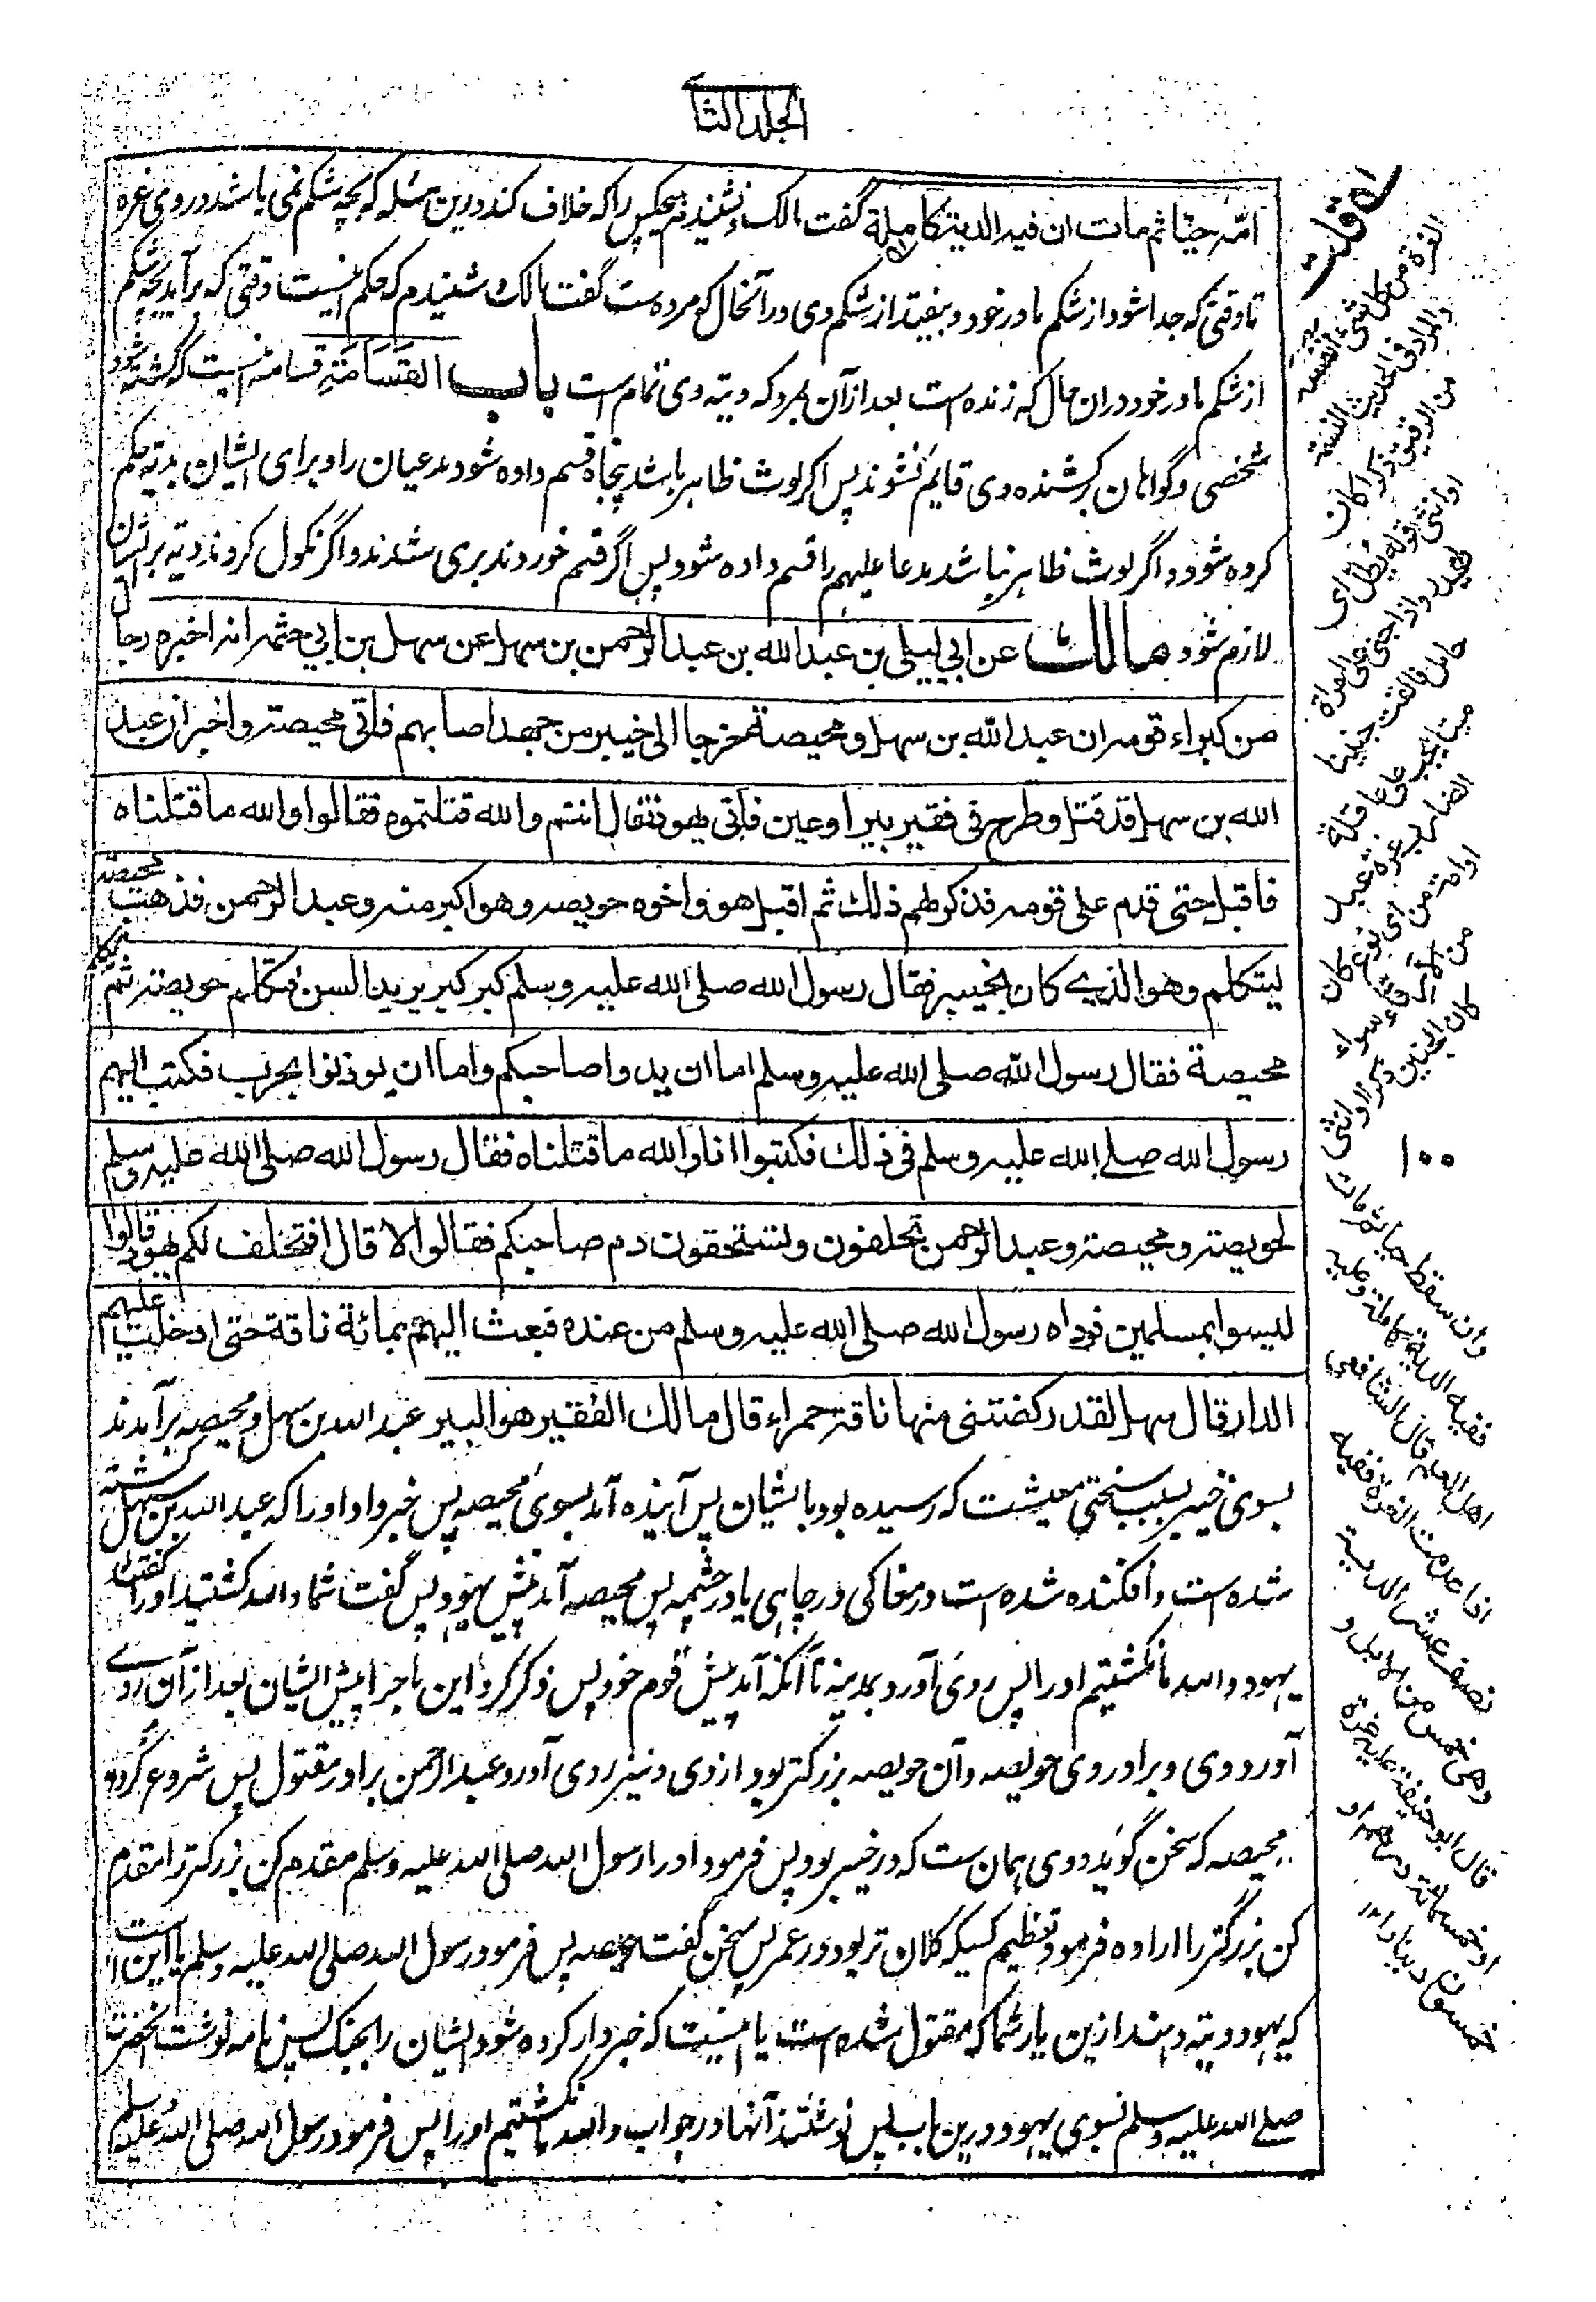 الجلد الثانی
امّه حيّا ثم مات ان فيه الدية كاملة گفت مالک و نشنیدم هیچکس را که خلاف کند درین مسئله که بچه شکم نمی باشد در وی غره
تا وقتی که جدا شود از شکم مادر خود و بیفتد از شکم وی در آنحال که مرده ست گفت مالک و شنیدم که حکم اینست وقتی که برآید بچه شکم
از شکم مادر خود دران حال که زنده است بعد ازآن بمرد که دیته وی تمام است باب القسامة قسامه اینست که کشته شود
شخصی و گواهان بر کشنده وی قایم نشوند پس اگر لوث ظاهر باشد پنجاه قسم داده شود مدعیان را و برای ایشان بدیته حکم
کرده شود و اگر لوث ظاهر نباشد مدعا علیهم را قسم داده شود پس اگر قسم خوردند بری شدند و اگر نکول کردند دیته بر ایشان
لازم شود مالك عن ابي ليلى بن عبد الله بن عبد الرحمن بن سهل عن سهل بن ابي حثمه انه اخبره رجال
من كبراء قومه ان عبد الله بن سهل و محيصة خرجا الى خيبر من جهد اصابهم فاتى محيصة و اخبر ان عبد
الله بن سهل قد قتل و طرح في فقير بير او عين فاتى يهود فقال انتم والله قتلتموه فقالوا والله ما قتلناه
فاقبل حتى قدم على قومه فذكر لهم ذلك ثم اقبل هو و اخوه حويصه و هو اكبر منه و عبد الرحمن فذهب محيصة
ليتكلم و هو الذي كان بخيبر فقال رسول الله صلى الله عليه و سلم كبر كبر يريد السن فتكلم حويصة ثم تكلم
محيصة فقال رسول الله صلى الله عليه و سلم اما ان يدوا صاحبكم و اما ان يوذنوا بحرب فكتب اليهم
رسول الله صلى الله عليه و سلم في ذلك فكتبوا انا والله ما قتلناه فقال رسول الله صلى الله عليه و سلم
لحويصة و محيصة و عبد الرحمن تحلفون و تستحقون دم صاحبكم فقالوا لا قال افتحلف لكم يهود قالوا
ليسوا بمسلمين فوداه رسول الله صلى الله عليه و سلم من عنده فبعث اليهم بمائة ناقة حتى ادخلت عليهم
الدار قال سهل لقد ركضتني منها ناقة حمراء قال مالك الفقير هو البير عبد الله بن سهل و محیصه برآمدند
بسوی خیبر بسبب سختی معیشت که رسیده بود بایشان پس آینده آمد بسوی محیصه پس خبر داد او را که عبد الله بن سهل کشته
شده است و افکنده شده است در مغاکی در چاهی یا در چشمه پس محیصه آمد پیش یهود پس گفت شما والله کشتید او را گفتند
یهود والله ما نکشتیم او را پس روی آورد بمدینه تا آنکه آمد پیش قوم خود پس ذکر کرد این ماجرا پیش ایشان بعد ازآن روے
آورد وی و برادر وی حویصه و آن حویصه بزرگتر بود از وی و نیز روی آورد عبد الرحمن برادر مقتول پس شروع کرد
محیصه که سخن گوید و وی همان ست که در خیبر بود پس فرمود او را رسول الله صلی الله علیه وسلم مقدم کن بزرگتر را مقدم
کن بزرگتر را اراده فرمود تعظیم کسیکه کلان تر بود در عمر پس سخن گفت حویصه پس فرمود رسول الله صلی الله علیه وسلم یا این است
که یهود دیته دهند ازین یار شما که مقتول شده است یا اینست که خبردار کرده شود ایشان را بجنگ پس نامه نوشت آنحضرت
صلے الله علیه وسلم بسوی یهود درین باب پس نوشتند آنها در جواب والله ما نکشتیم او را پس فرمود رسول الله صلی الله علیه وسلم
١٠٠
وان سقط حيا ثم مات
ففيه الدية كاملة و عليه
اهل العلم قال الشافعي
اذا عدمت الغرة ففيه
نصف عشر الدية
وهي خمس من الابل و
قال ابو حنيفة عليه غرة
او خمسمائة درهم او
خمسون دينارا ١٢